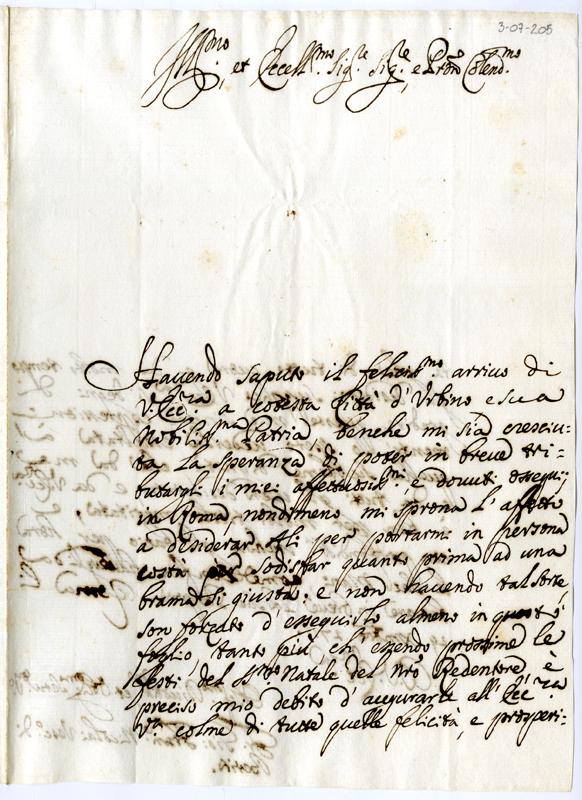 3-07-205
Ill.mo, et Eccell.mo Sig.re Sig.re, e Pron Colend.mo
Havendo saputo il feliciss.mo arrivo di
V. Ecc.za a cotesta Città d'Urbino e sua
Nobiliss.ma Patria, benche mi sia cresciu-
ta la speranza di poter in breve tri-
butargli i miei affettuosiss.mi e douuti ossequij
in Roma, nondimeno mi sprona l'affetto
a desiderar per portarmi in persona
costà per sodisfar quanto prima ad una
brama si giusta: e non havendo tal sorte,
son forzato d'esseguirlo almeno in questo
foglio, tanto più che essendo prossime le
feste del S.mo Natale del nrõ Redentore, è
preciso mio debito d'augurarle all'Ecc.za
V.a colme di tutte quelle felicità, e prosperi-